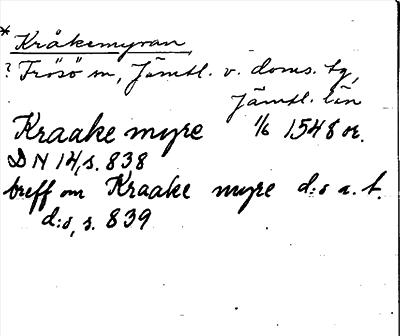 * Kråkemyran
? Frösö sn, Jämtl. v. doms. tg,
Jämtl. län
Kraake myre 1/6 1548 or.
DN 14, s. 838
breff om Kraake myre d:o a. t.
d:o, s. 839